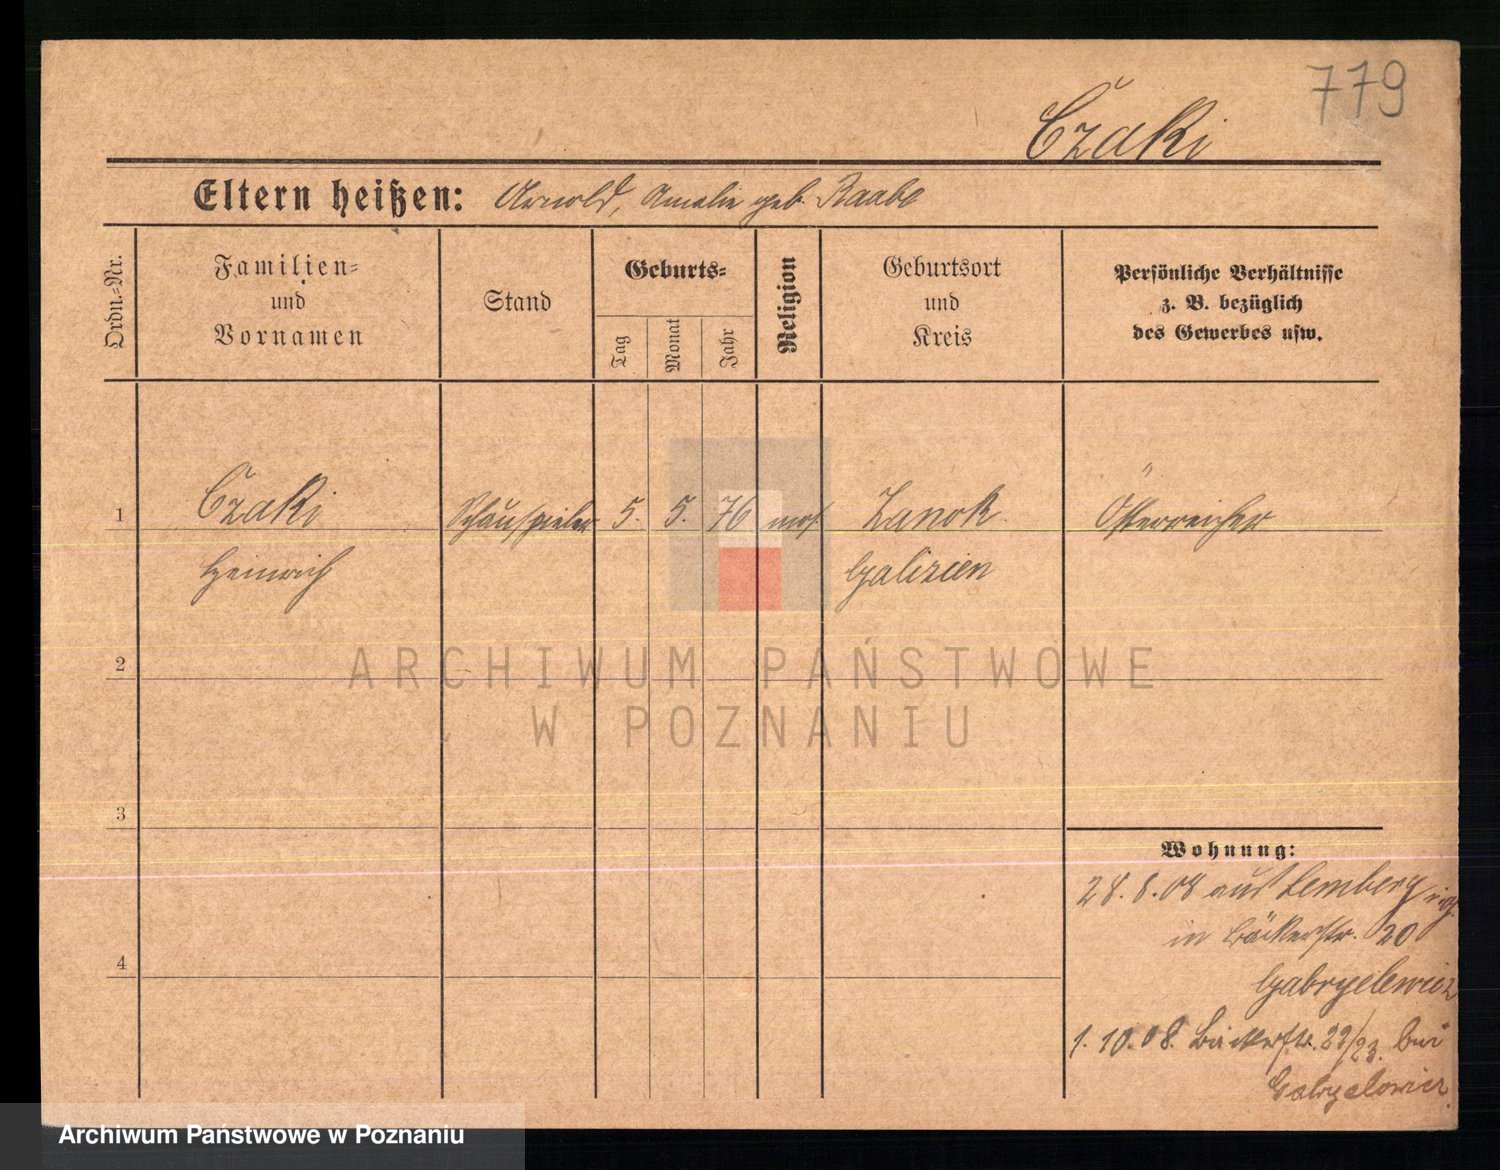 779
Czaki
Eltern heißen: Arnold, Amalie geb. Raabe
Ordn.-Nr.
Familien-
und
Vornamen
Stand
Geburts-
Tag
Monat
Jahr
Religion
Geburtsort
und
Kreis
Persönliche Verhältnisse
z. B. bezüglich
des Gewerbes usw.
1 Czaki Schauspieler 5. 5. 76 mos. Zanok Österreicher
Heinrich Galizien
2
3
4
ARCHIWUM PAŃSTWOWE
W POZNANIU
Wohnung:
28. 8. 08 aus Lemberg
in Bäckerstr. 20
Gabryelewicz
1. 10. 08. Bäckerstr. 23. bei
Gabryelowicz.
Archiwum Państwowe w Poznaniu